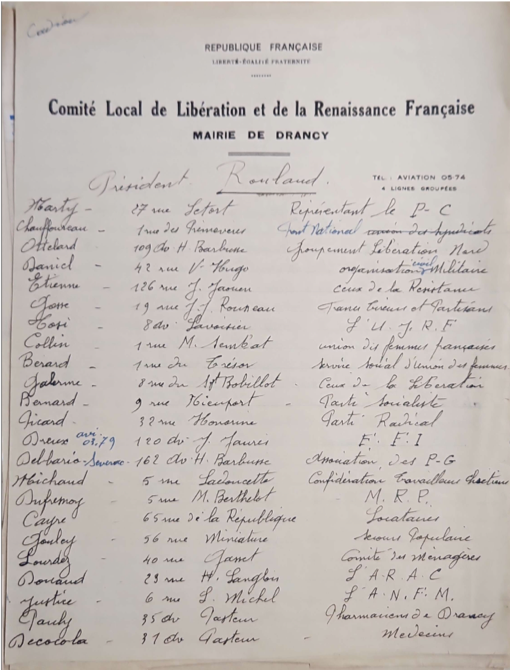 REPUBLIQUE FRANÇAISE
LIBERTÉ-ÉGALITÉ FRATERNITÉ
Comité Local de Libération et de la Renaissance Française
MAIRIE DE DRANCY
TEL : AVIATION 05-74
4 LIGNES GROUPÉES
Président Rouland.
Marty - 27 rue Représentant le P-C
1 rue des Primeveres Front National
109 dv H Barbusse groupement Libération Nord
Daniel - 42 rue V. Hugo organisation civil Militaire
Etienne - 126 rue J. ceux de la Resistance
Gosse - 19 rue J. J. Rousseau Francs Tireurs et Partisans
8 dv Lavoisier L'U. J. R. F
Collin - 1 rue M. Sembat union des femmes françaises
Berard - 1 rue du Trésor service social d'union des femmes
8 rue du Sgt Bobillot - Ceux de la libération
Bernard - 9 rue Nieuport - Parti Socialiste
Picard - 32 rue Honorine Parti Radical
Dreux avi 08.79 120 dv J. Jaurès F. F. I
162 dv H. Barbusse Association des P-G
Michaud - 5 rue Confédération travailleurs chretiens
Dufresnoy - 5 rue M. Berthelot - M. R. P.
Cayre 65 rue de la République Locataires
56 rue Miniature Secours Populaire
Lourdez - 40 rue Comité des Ménagères
23 rue H. Langlois L'A. R. A. C
Justice - 6 rue L. Michel L'A. N. F. M.
35 dv Pasteur - Pharmaciens de Drancy
31 dv Pasteur - Medecins